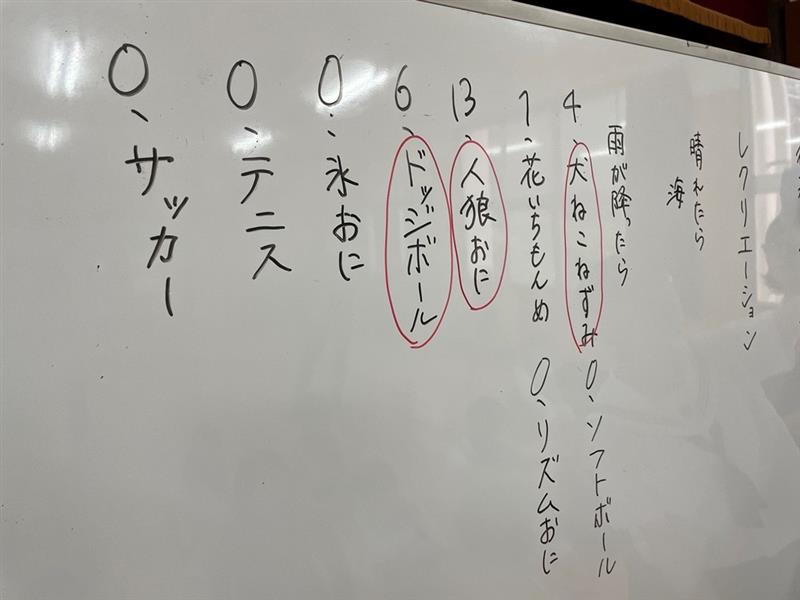 レクリエーション
晴れたら
海
雨が降ったら
4、犬ねこねずみ
0、ソフトボール
1、花いちもんめ
0、リズムおに
13、人狼おに
6、ドッジボール
0、氷おに
0、テニス
0、サッカー